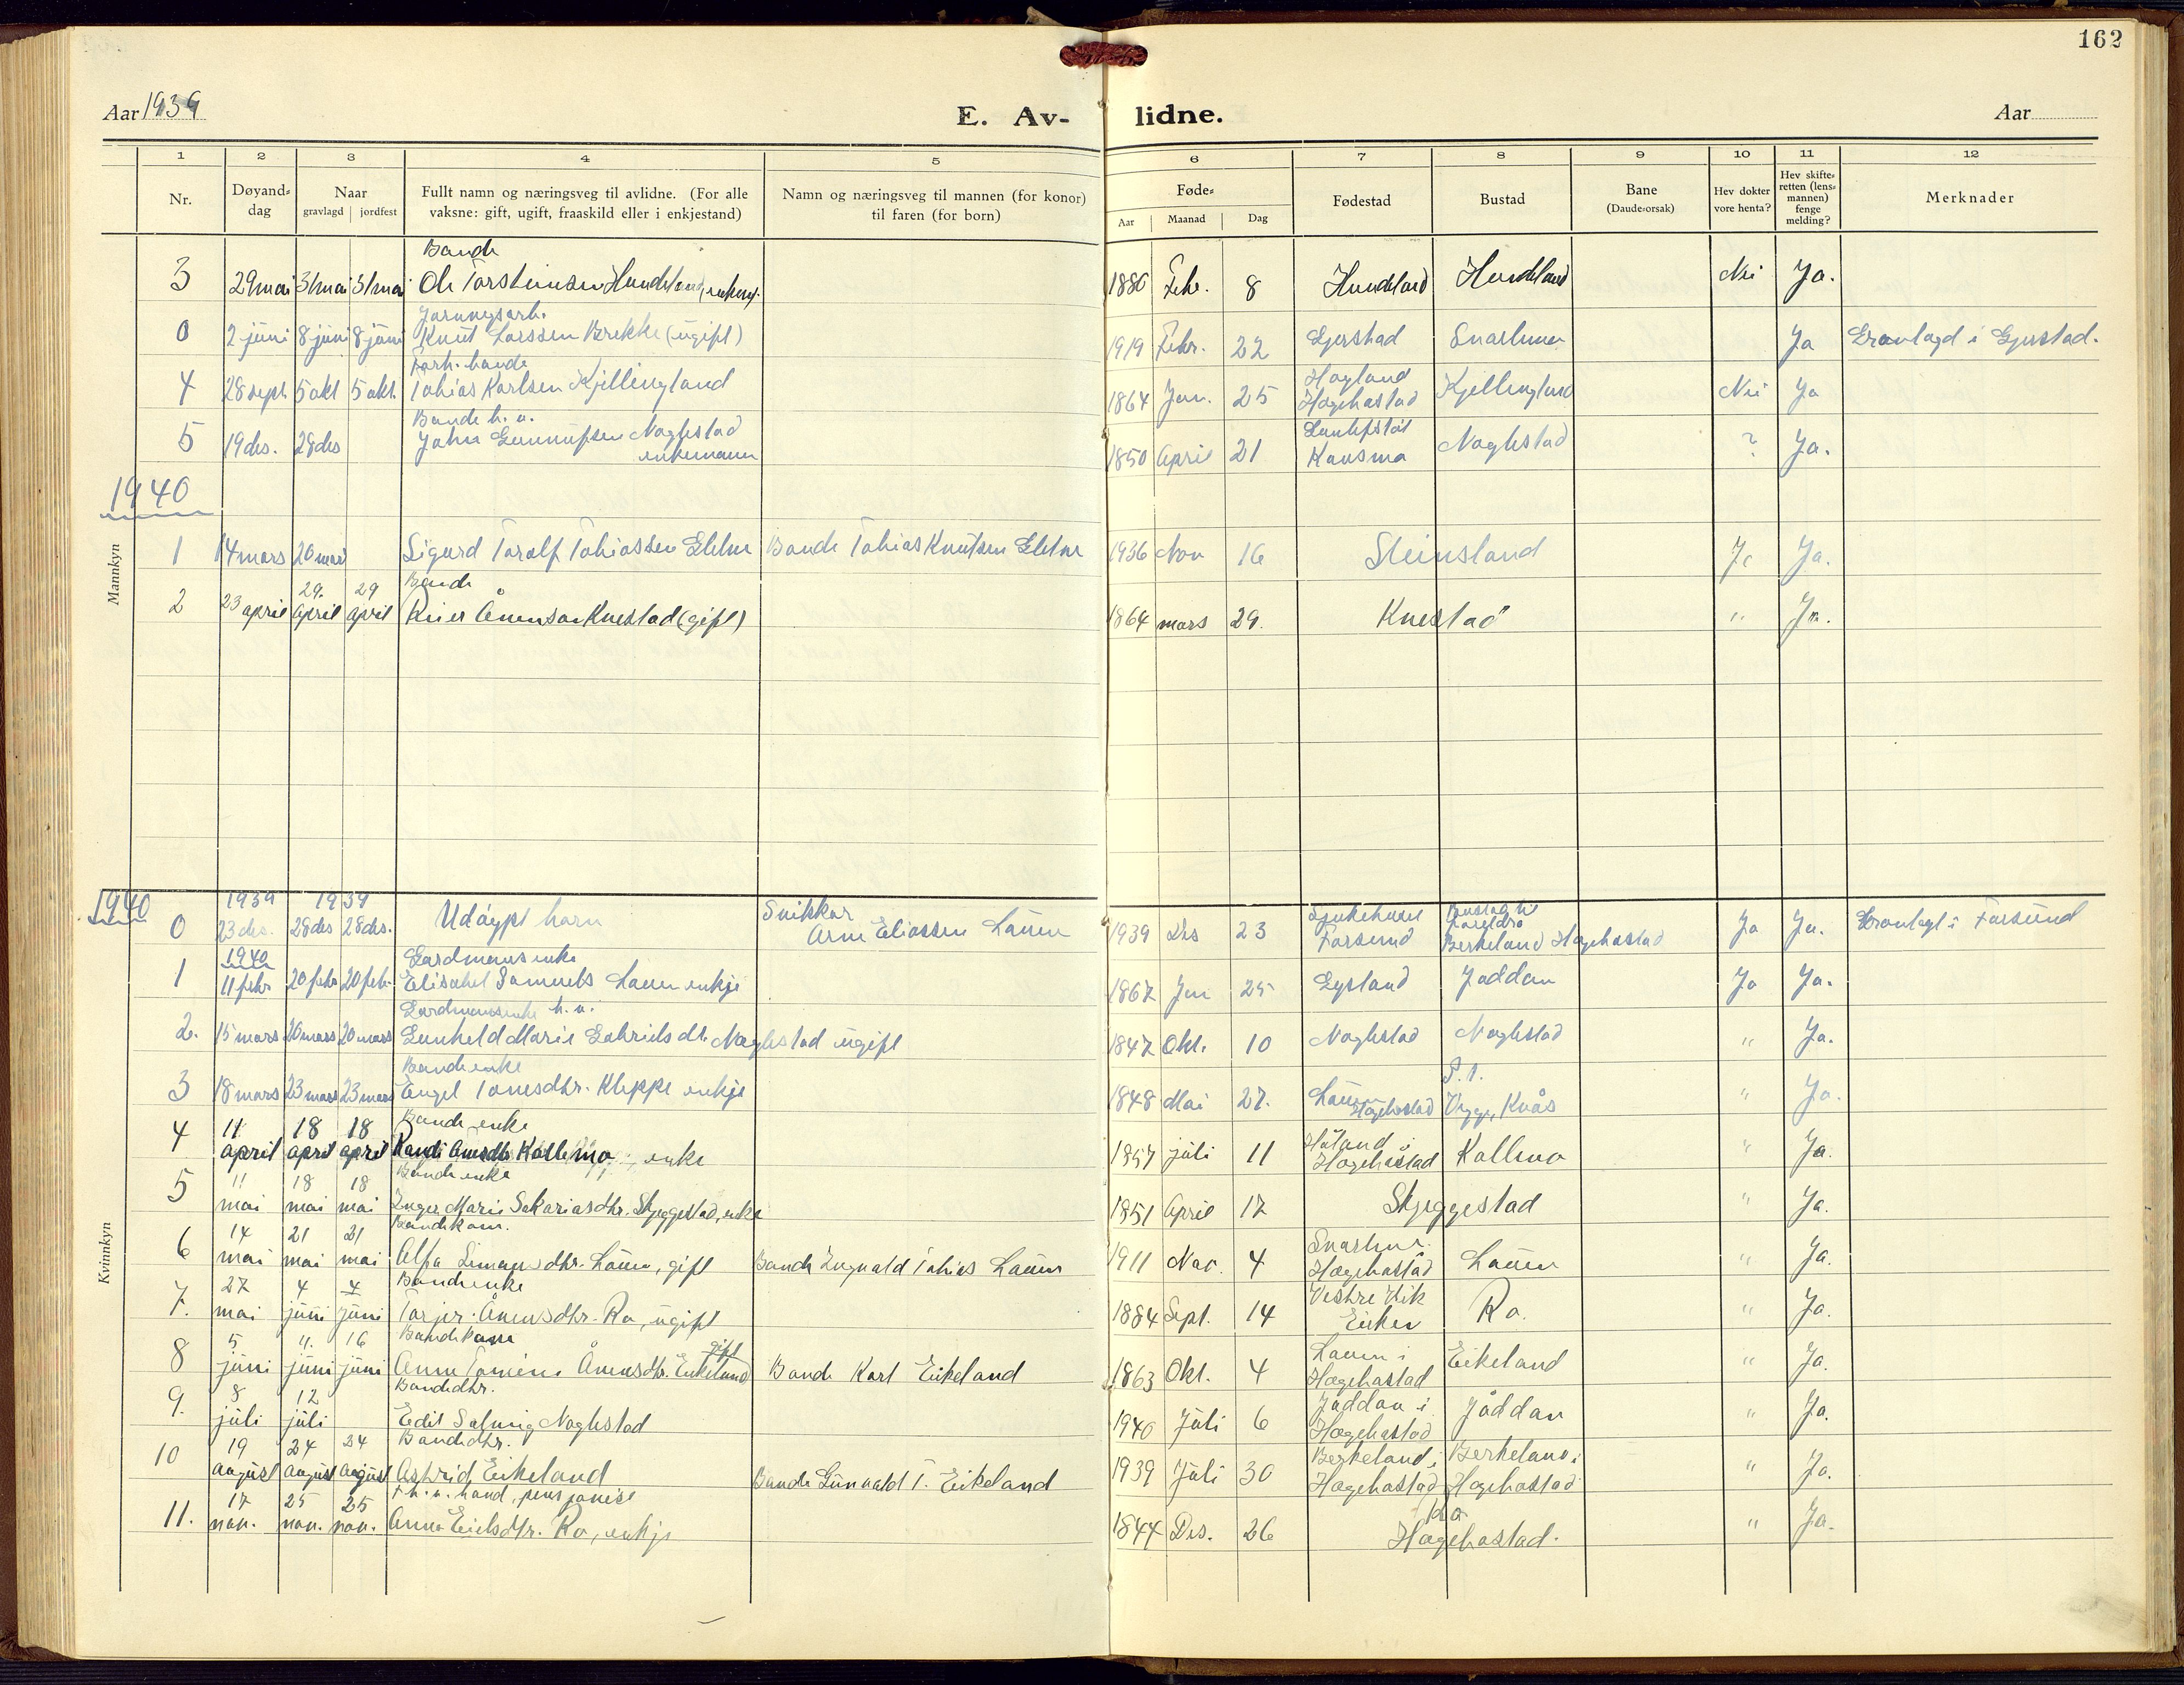 162
Aar 1939
E. Av-
lidne.
Aar
1 2 3 4 5 6 7 8 9 10 11 12
Nr.
Døyand-
dag
Naar
gravlagd | jordfest
Fullt namn og næringsveg til avlidne. (For alle
vaksne: gift, ugift, fraaskild eller i enkjestand)
Namn og næringsveg til mannen (for konor)
til faren (for born)
Føde-
Aar Maanad Dag
Fødestad
Bustad
Bane
(Daude-orsak)
Hev dokter
vore henta?
Hev skifte-
retten (lens-
mannen)
fenge
melding?
Merknader
Mannkyn
Bonde
3 29 mai 31 mai 31 mai Ole Torsteinsen Hundeland, enkem. 1880 Febr. 8 Hundeland Hundeland Nei Ja.
0 2 juni 8 juni 8 juni Knut Larssen Brekke (ugift) 1919 Febr. 22 Gjerstad Snarhmo Ja Gravlagd i Gjerstad.
Forh. bonde
4 28 sept. 5 okt 5 okt. Tobias Karlsen Kjellingland 1864 Jan. 25 Hogland Hægebostad Kjellingland Nei Ja
Bonde k. a.
5 19 des. 28 des John Gunnufsen Naglestad
enkemann 1850 April 21 Kausma Naglestad ? Ja.
1940
1 14 mars 20 mars Sigurd Toralf Tobiassen Eleline Bonde Tobias Knutsen 1936 Nov 16 Steinsland Ja Ja.
Bonde
2 23 april 29. april 29 april Reier Ånensen Knestad (gift) 1864 mars 29. Knestad " Ja.
1940
Kvinnkyn
1939 1939
0 23 des. 28 des 28 des. Udøypt barn Snikkar
Arne Eliassen Lauen 1939 Des 23 Sjukehuset
Farsund Bustad til
foreldra
Berkeland Hægebostad Ja Ja. Gravlagt i Farsund
1940
Gardmans enke
1 11 febr 20 febr 20 febr. Elisabet Samuels Lauen enkje 1867 Jan 25 Eysland Jåddan Ja Ja.
2. 15 mars 20 mars 20 mars Gunheld Marie Gabrielsdtr. Naglestad ugift 1847 Okt. 10 Naglestad Naglestad " Ja.
Bonde enke
3 18 mars 23 mars 23 mars Engel Tonesdtr. Kleppe enkje 1848 Mai 27. Lauen
Hægebostad Vigge, Knås " Ja.
Bonde enke
4 11 april 18 april 18 april Randi Ånensdtr Kollemo, enke 1857 juli 11 Håland i
Hægebostad Kollemo " Ja.
Bonde enke
5 11 mai 18 mai 18 mai Inger Marie Sakariasdtr. Skjeggestad, enke 1851 April 17 Skjeggestad " Ja.
Bondekone.
6 14 mai 21 mai 21 mai Alfa Simonsdtr. Lauen, gift Bonde Ingvald Tobias Lauen 1911 Nov. 4 Snarhmo.
Hægebostad Lauen " Ja.
Bondeenke
7. 27 mai 4 juni 4 juni Torjer Ånensdtr. Ro, ugift 1884 Sept. 14 Vestre Vik
Eiken Ro. " Ja.
Bondekone
8 5 juni 11. juni 16 juni Anne Ånensdtr. Eikeland gift Bonde Karl Eikeland 1863 Okt. 4 Lauen i
Hægebostad Eikeland " Ja.
Bondedtr.
9. 8 juli 12 juli Edit Solveig Naglestad 1940 Juli 6 Jåddan i
Hægebostad Jåddan " Ja.
Bondedtr.
10 19 august 24 august 24 august Astrid Eikeland Bonde Gunvald T. Eikeland 1939 Juli 30 Berkeland i
Hægebostad Berkeland i
Hægebostad " Ja.
11. 17 nov. 25 nov. 25 nov. Anne Eielsdtr. Ro, enkje 1844 Des. 26 Ro
Hægebostad. " Ja.